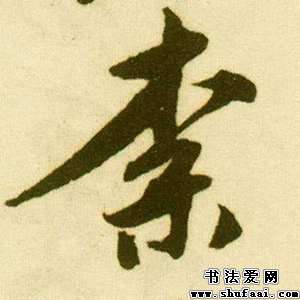 柰
书法爱网
www.shufaai.com